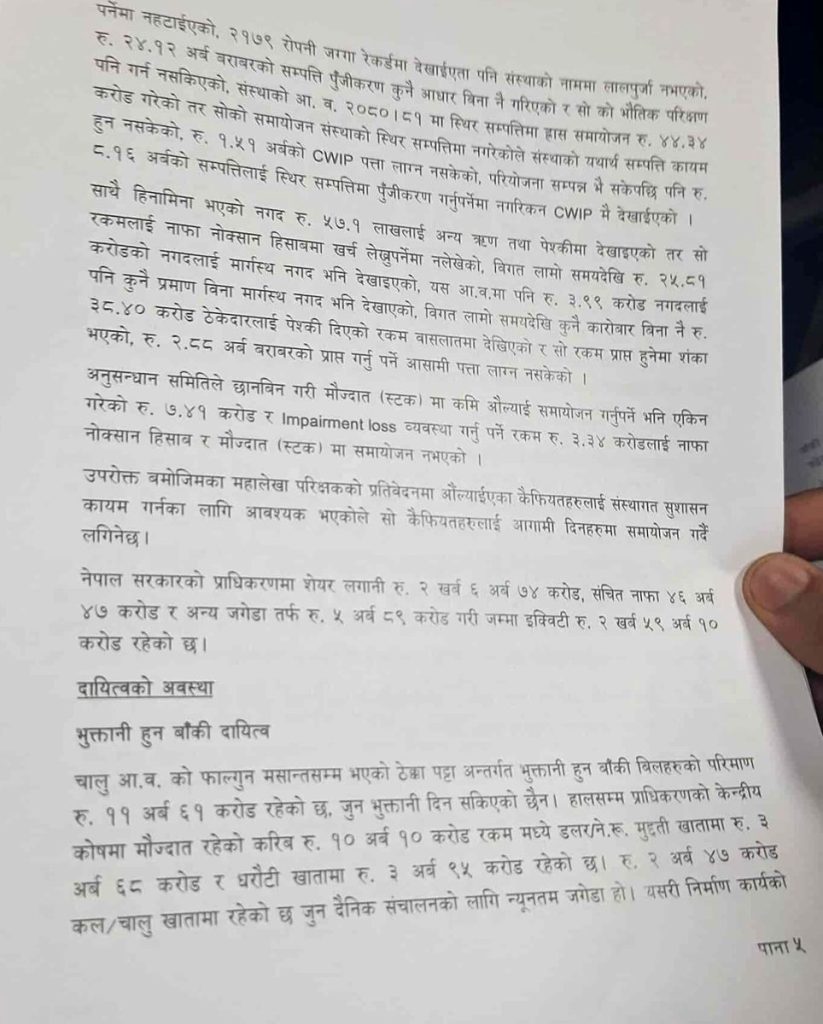 पर्नेमा नहटाईएको, २१७९ रोपनी जग्गा रेकर्डमा देखाईएता पनि संस्थाको नाममा लालपुर्जा नभएको,
रु. २४.१२ अर्ब बराबरको सम्पत्ति पुँजीकरण कुनै आधार बिना नै गरिएको र सो को भौतिक परिक्षण
पनि गर्न नसकिएको, संस्थाको आ. व. २०८०।८१ मा स्थिर सम्पत्तिमा ह्रास समायोजन रु. ४४.३४
करोड गरेको तर सोको समायोजन संस्थाको स्थिर सम्पत्तिमा नगरेकोले संस्थाको यथार्थ सम्पत्ति कायम
हुन नसकेको, रु. १.५१ अर्बको CWIP पत्ता लाग्न नसकेको, परियोजना सम्पन्न भै सकेपछि पनि रु.
८.१६ अर्बको सम्पत्तिलाई स्थिर सम्पत्तिमा पुँजीकरण गर्नुपर्नेमा नगरिकन CWIP मै देखाईएको ।
साथै हिनामिना भएको नगद रु. ५७.१ लाखलाई अन्य ऋण तथा पेश्कीमा देखाइएको तर सो
रकमलाई नाफा नोक्सान हिसाबमा खर्च लेख्नुपर्नेमा नलेखेको, विगत लामो समयदेखि रु. २५.८१
करोडको नगदलाई मार्गस्थ नगद भनि देखाइएको, यस आ.व.मा पनि रु. ३.९९ करोड नगदलाई
पनि कुनै प्रमाण बिना मार्गस्थ नगद भनि देखाएको, विगत लामो समयदेखि कुनै कारोबार बिना नै रु.
३८.४० करोड ठेकेदारलाई पेश्की दिएको रकम वासलातमा देखिएको र सो रकम प्राप्त हुनेमा शंका
भएको, रु. २.८८ अर्ब बराबरको प्राप्त गर्नु पर्ने आसामी पत्ता लाग्न नसकेको ।
अनुसन्धान समितिले छानबिन गरी मौज्दात (स्टक) मा कमि औल्याई समायोजन गर्नुपर्ने भनि एकिन
गरेको रु. ७.४१ करोड र Impairment loss व्यवस्था गर्नु पर्ने रकम रु. ३.३४ करोडलाई नाफा
नोक्सान हिसाब र मौज्दात (स्टक) मा समायोजन नभएको ।
उपरोक्त बमोजिमका महालेखा परिक्षकको प्रतिवेदनमा औंल्याईएका कैफियतहरुलाई संस्थागत सुशासन
कायम गर्नका लागि आवश्यक भएकोले सो कैफियतहरुलाई आगामी दिनहरुमा समायोजन गर्दै
लगिनेछ।
नेपाल सरकारको प्राधिकरणमा शेयर लगानी रु. २ खर्ब ६ अर्ब ७४ करोड, संचित नाफा ४६ अर्ब
४७ करोड र अन्य जगेडा तर्फ रु. ५ अर्ब ८९ करोड गरी जम्मा इक्विटी रु. २ खर्ब ५९ अर्ब १०
करोड रहेको छ।
दायित्वको अवस्था
भुक्तानी हुन बाँकी दायित्व
चालु आ.व. को फाल्गुन मसान्तसम्म भएको ठेक्का पट्टा अन्तर्गत भुक्तानी हुन बाँकी बिलहरुको परिमाण
रु. ११ अर्ब ६१ करोड रहेको छ, जुन भुक्तानी दिन सकिएको छैन। हालसम्म प्राधिकरणको केन्द्रीय
कोषमा मौज्दात रहेको करिब रु. १० अर्ब १० करोड रकम मध्ये डलर/ने.रू. मुद्दती खातामा रु. ३
अर्ब ६८ करोड र धरौटी खातामा रु. ३ अर्ब ९५ करोड रहेको छ। रु. २ अर्ब ४७ करोड
कल/चालु खातामा रहेको छ जुन दैनिक संचालनको लागि न्यूनतम जगेडा हो। यसरी निर्माण कार्यको
पाना ५